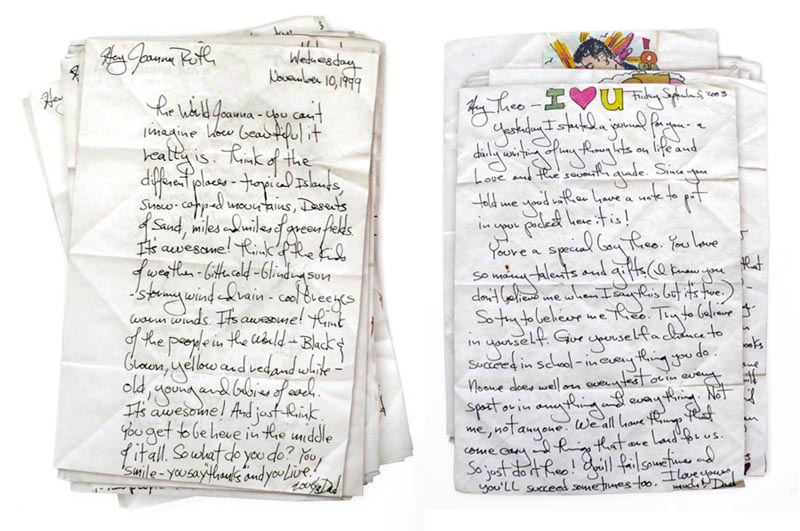 Hey Joanna Ruth
Wednesday
November 10, 1999
The World Joanna - you can't
imagine how beautiful it
really is. Think of the
different places - tropical Islands,
snow-capped mountains, Deserts
of Sand, miles and miles of green fields.
Its awesome! Think of the kinds
of weather - bitter cold - blinding sun
- stormy wind & rain - cool breezes
warm winds. Its awesome! Think
of the people in the World - Black &
brown, yellow and red and white -
old, young and babies of each.
Its awesome! And just think
you get to be here in the middle
of it all. So what do you do? You
smile - you say "thanks" and you Live!
Dad
Hey Theo - I ♥ U Friday September 5, 2003
Yesterday I started a journal for you - a
daily writing of my thoughts on life and
love and the seventh grade. Since you
told me you'd rather have a note to put
in your pocket here it is!
You're a special boy Theo. You have
so many talents and gifts (I know you
don't believe me when I say this but it's true.)
So try to believe me Theo. Try to believe
in yourself. Give yourself a chance to
succeed in school - in everything you do.
No one does well on every test or in every
sport or in anything and everything. Not
me, not anyone. We all have things that
come easy and things that are hard for us.
So just do it Theo! You'll fail sometimes and
you'll succeed sometimes too. I love you so
much! Dad